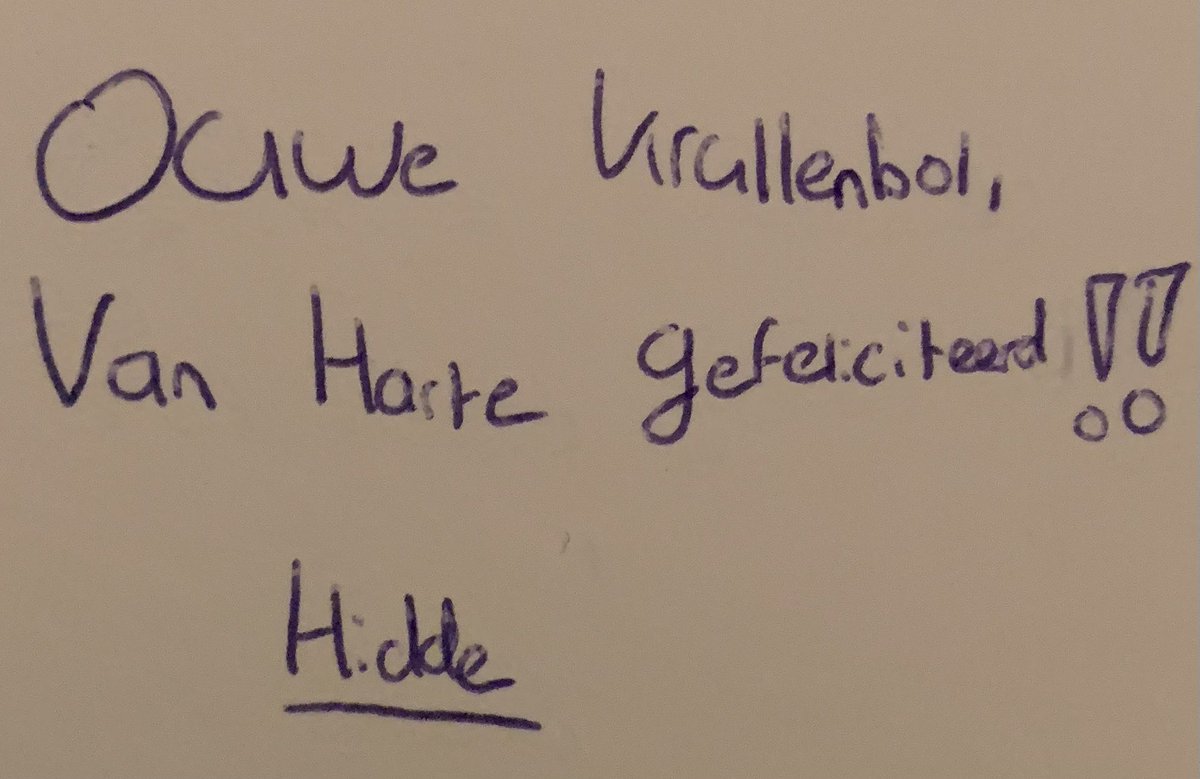 Ouwe Krullenbol,
Van Harte gefeliciteerd!!
Hidde